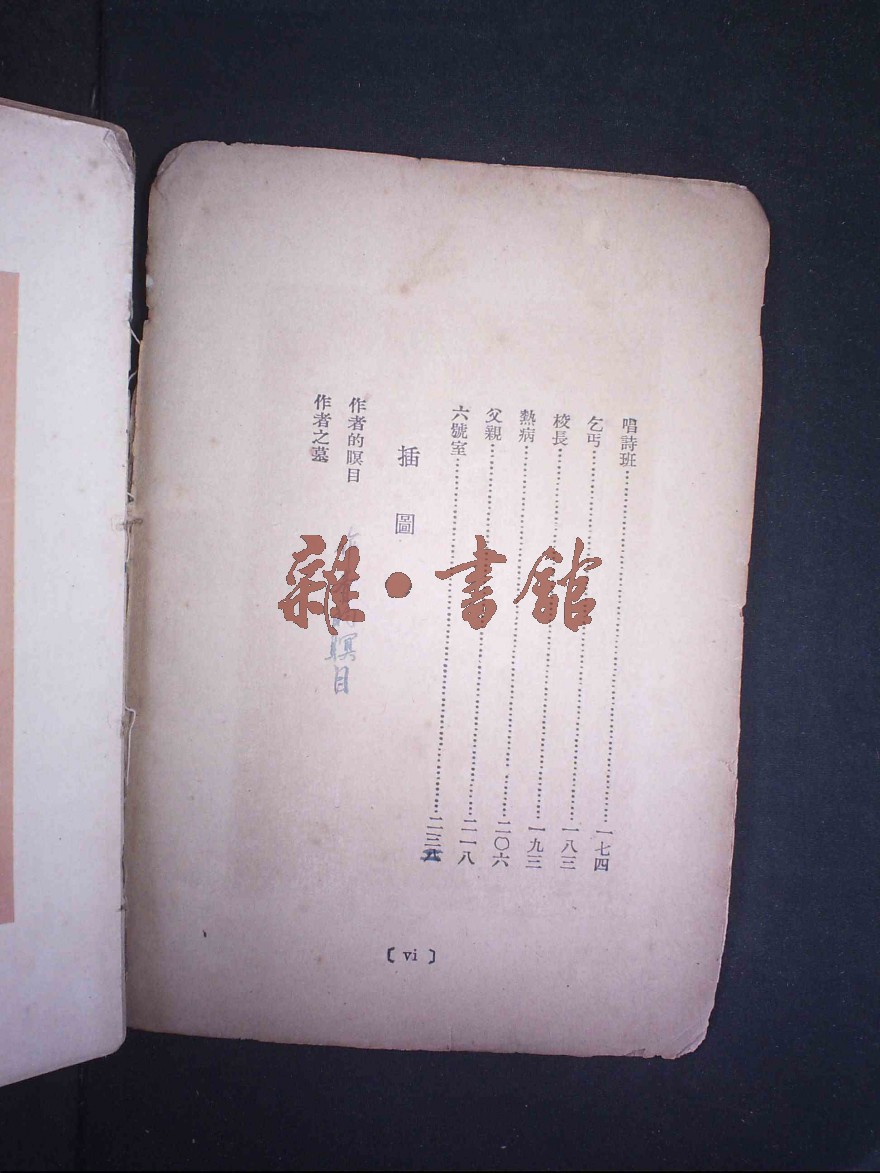 唱詩班⋯⋯⋯⋯⋯⋯⋯⋯一七四
乞丐⋯⋯⋯⋯⋯⋯⋯⋯一八三
校長⋯⋯⋯⋯⋯⋯⋯⋯一九三
熱病⋯⋯⋯⋯⋯⋯⋯⋯二〇六
父親⋯⋯⋯⋯⋯⋯⋯⋯二一八
六號室⋯⋯⋯⋯⋯⋯⋯⋯二三
插圖
作者的瞑目
瞑目
作者之墓
〔vi〕
雜•書館